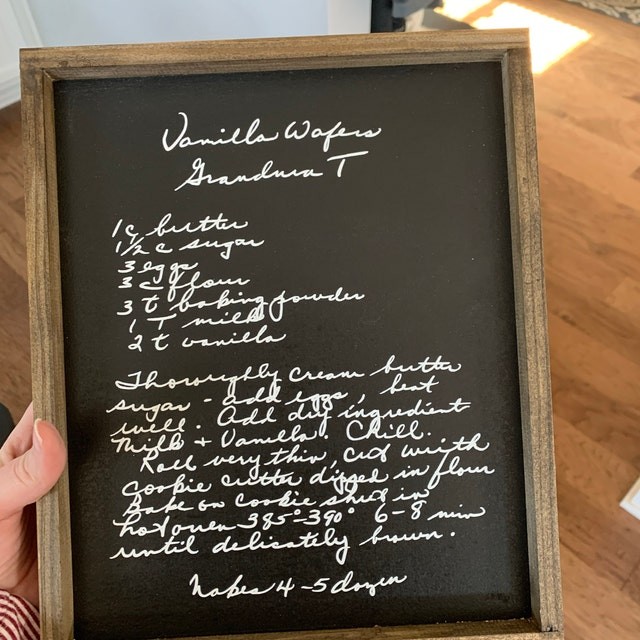 Vanilla Wafers
Grandma T
1c butter
1 1/2 c sugar
3 eggs
3 c flour
3 t baking powder
1 T milk
2 t vanilla
Thoroughly cream butter
sugar - add eggs, beat
well. Add dry ingredient
Milk + Vanilla. Chill.
Roll very thin, cut with
cookie cutter dipped in flour
Bake on cookie sheet in
hot oven 385°-390° 6-8 min
until delicately brown.
Makes 4-5 dozen